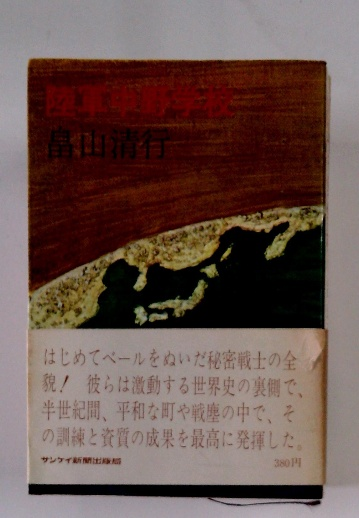 陸軍中野学校
畠山清行
はじめてベールをぬいだ秘密戦士の全
貌! 彼らは激動する世界史の裏側で、
半世紀間、平和な町や戦塵の中で、そ
の訓練と資質の成果を最高に発揮した。
サンケイ新聞出版局
380円